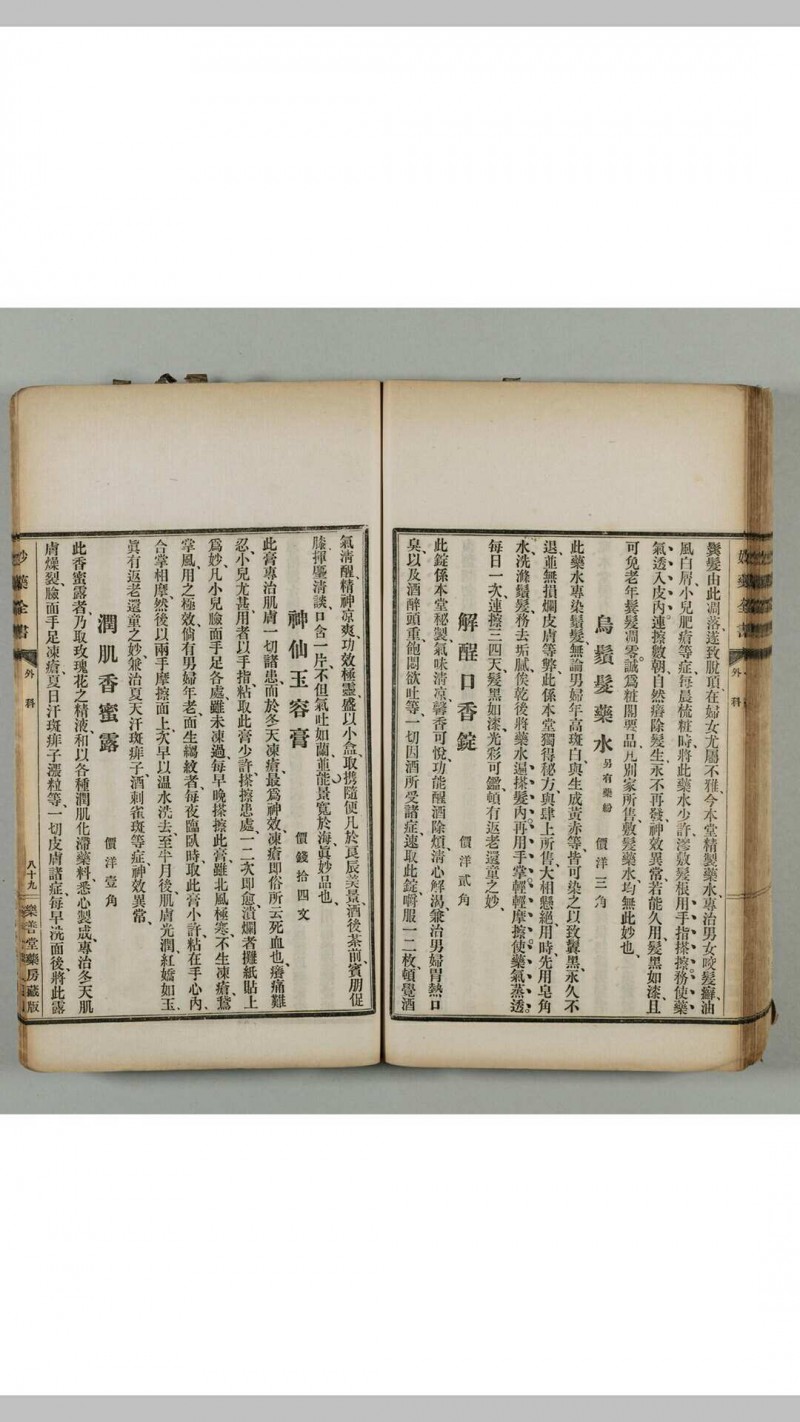 鬓髮由此凋落遂致脫頂在婦女尤屬不雅今本堂精製藥水專治男女咬髮癬油
風白屑小兒肥瘡等症每晨梳粧時將此藥水少許滲敷髮根用手指搽擦務使藥
氣透入皮內連擦數朝自然癢除髮生永不再發神效異常若能久用髮黑如漆且
可免老年鬓髮凋零誠爲粧閣要品凡別家所售敷髮藥水均無此妙也
烏鬚髮藥水 另有藥粉 價洋三角
此藥水專染鬚髮無論男婦年高斑白與生成黃赤等皆可染之以致黳黑永久不
退並無損爛皮膚等弊此係本堂獨得秘方與肆上所售大相懸絕用時先用皂角
水洗滌鬚髮務去垢膩俟乾後將藥水遍搽髮內再用手掌輕輕摩擦使藥氣蒸透
每日一次連擦三四天髮黑如漆光彩可鑑頓有返老還童之妙
解酲口香錠 價洋貳角
此錠係本堂秘製氣味清凉馨香可悅功能醒酒除煩清心解渴兼治男婦胃熱口
臭以及酒醉頭重飽悶欲吐等一切因酒所受諸症速取此錠嚼服一二枚頓覺酒
妙藥全書 外科
氣清醒精神凉爽功效極靈盛以小盒取携隨便凡於良辰美景酒後茶前賓朋促
膝揮麈清談口含一片不但氣吐如蘭並能量寬於海眞妙品也
神仙玉容膏 價錢拾四文
此膏專治肌膚一切諸患而於冬天凍瘡最爲神效凍瘡即俗所云死血也癢痛難
忍小兒尤甚用者以手指粘取此膏少許搽擦患處一二次即愈潰爛者攤紙貼上
爲妙凡小兒臉面手足各處雖未凍過每早晚搽擦此膏雖北風極寒不生凍瘡鵞
掌風用之極效倘有男婦年老面生縐紋者每夜臨臥時取此膏小許粘在手心內
合掌相摩然後以兩手摩擦面上次早以温水洗去至半月後肌膚光潤紅嬌如玉
眞有返老還童之妙兼治夏天汗斑痱子酒刺雀斑等症神效異常
潤肌香蜜露 價洋壹角
此香蜜露者乃取玫瑰花之精液和以各種潤肌化滯藥料悉心製成專治冬天肌
膚燥裂臉面手足凍瘡夏日汗斑痱子瘰粒等一切皮膚諸症每早洗面後將此露
妙藥全書 外科 八十九 樂善堂藥房藏版